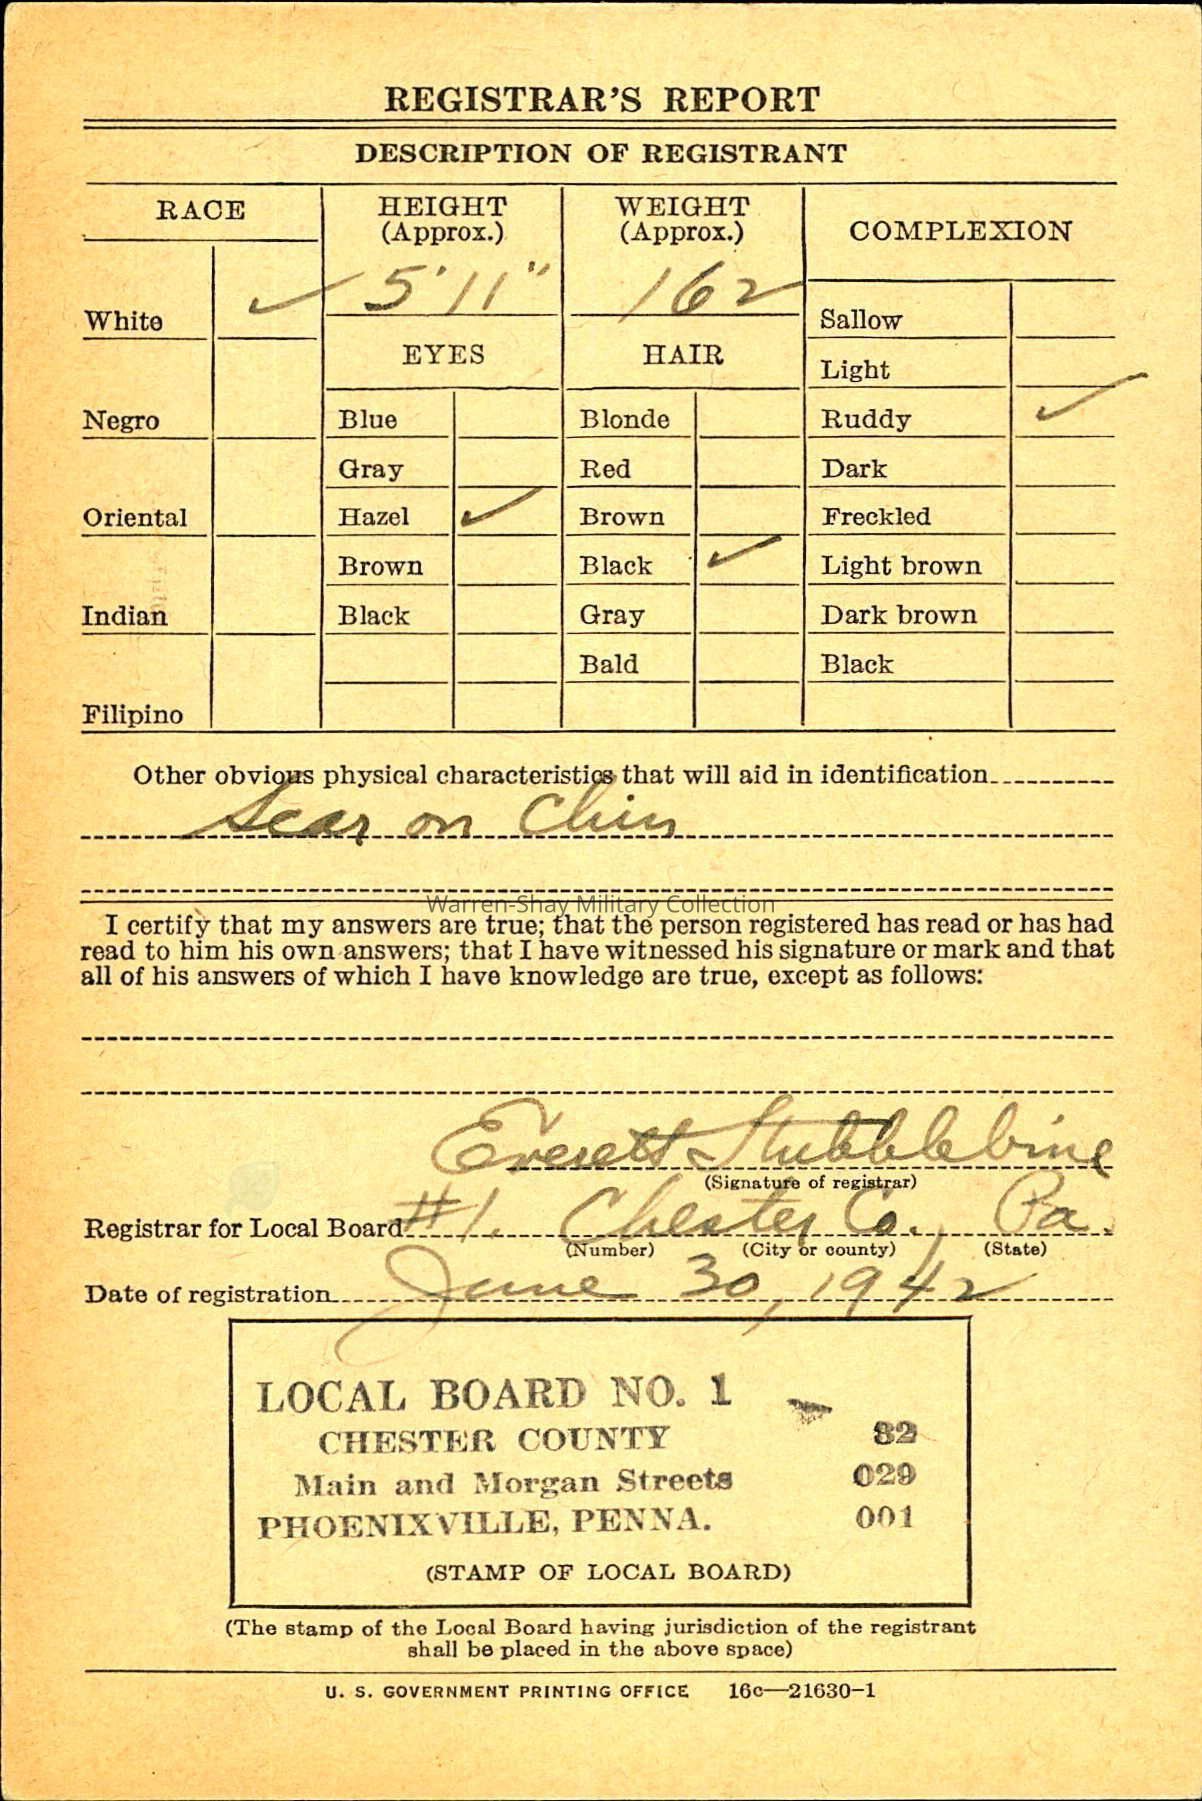 REGISTRAR'S REPORT
DESCRIPTION OF REGISTRANT
RACE
White ✓
Negro
Oriental
Indian
Filipino
HEIGHT
(Approx.)
5' 11"
WEIGHT
(Approx.)
162
EYES
Blue
Gray
Hazel ✓
Brown
Black
HAIR
Blonde
Red
Brown
Black ✓
Gray
Bald
COMPLEXION
Sallow
Light
Ruddy ✓
Dark
Freckled
Light brown
Dark brown
Black
Other obvious physical characteristics that will aid in identification
Scar on Chin
Warren-Shay Military Collection
I certify that my answers are true; that the person registered has read or has had
read to him his own answers; that I have witnessed his signature or mark and that
all of his answers of which I have knowledge are true, except as follows:
Everett Stubblebine
(Signature of registrar)
Registrar for Local Board #1. Chester Co., Pa.
(Number) (City or county) (State)
Date of registration June 30, 1942
LOCAL BOARD NO. 1
CHESTER COUNTY 82
Main and Morgan Streets 029
PHOENIXVILLE, PENNA. 001
(STAMP OF LOCAL BOARD)
(The stamp of the Local Board having jurisdiction of the registrant
shall be placed in the above space)
U. S. GOVERNMENT PRINTING OFFICE 16c—21630-1